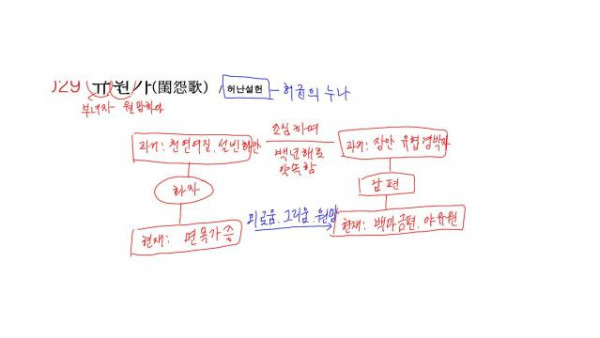 029 규원가(閨怨歌) 허난설헌 - 허균의 누나
부녀자 - 원망하다
과거: 천연여질, 설빈화안
조심하며
백년해로
약속함
과거: 장안 유협 경박자
화자
남편
현재: 면목가증
괴로움, 그리움, 원망
현재: 백마금편, 야유원